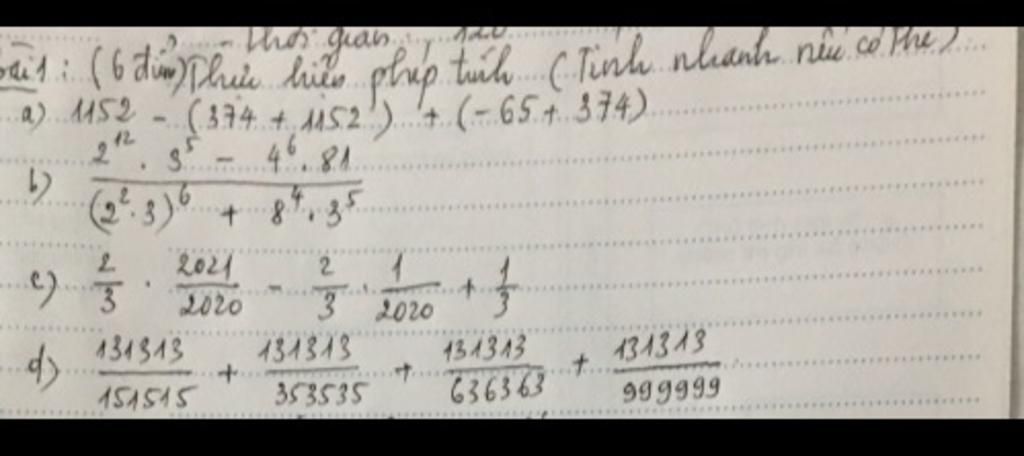 - Thời gian : 120
Bài 1 : (6 điểm) Thực hiện phép tính (Tính nhanh nếu có thể)
a) 1152 - (374 + 1152) + (-65 + 374)
b) \frac{2^{12} . 3^5 - 4^6 . 81}{(2^2 . 3)^6 + 8^4 . 3^5}
c) \frac{2}{3} . \frac{2021}{2020} - \frac{2}{3} . \frac{1}{2020} + \frac{1}{3}
d) \frac{131313}{151515} + \frac{131313}{353535} + \frac{131313}{636363} + \frac{131313}{999999}